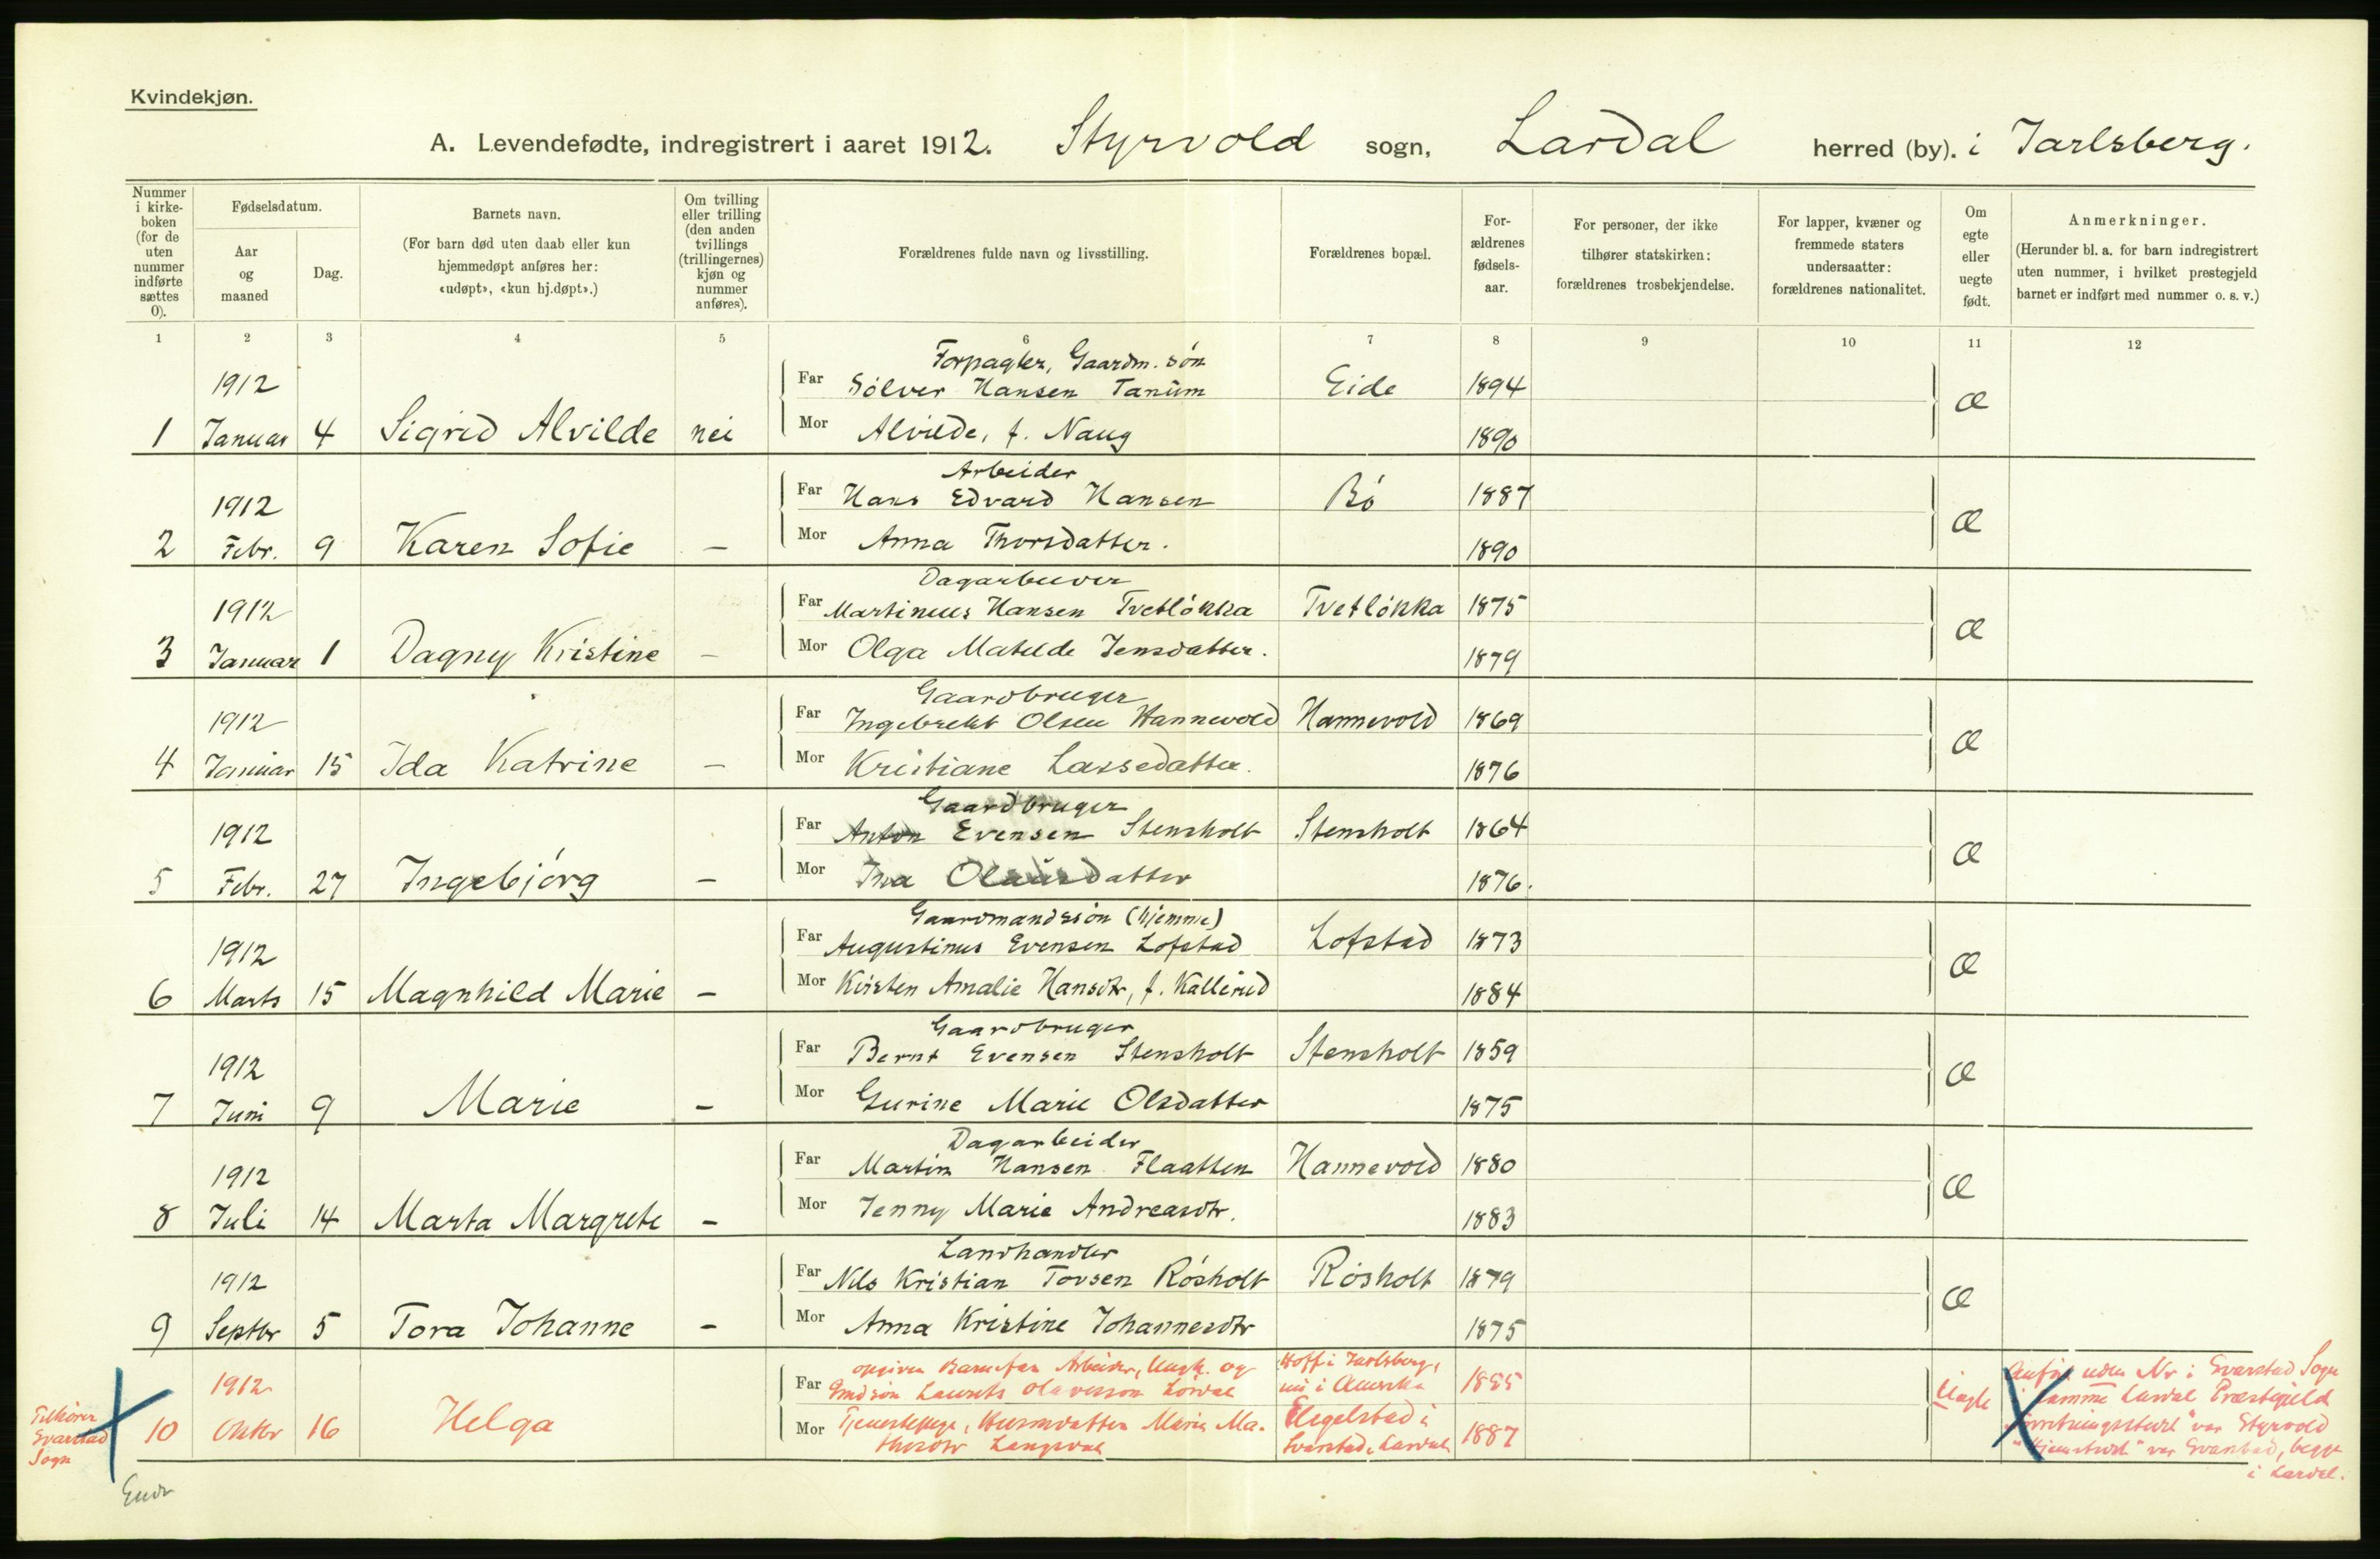 Kvindekjøn.
A. Levendefødte, indregistrert i aaret 1912. Styrvold sogn, Lardal herred (by). i Jarlsberg.
Nummer i kirke-boken (for de uten nummer indførte sættes 0).
Fødselsdatum.
Aar og maaned
Dag.
Barnets navn.
(For barn død uten daab eller kun hjemmedøpt anføres her: «udøpt», «kun hj.døpt».)
Om tvilling eller trilling (den anden tvillings (trillingernes) kjøn og nummer anføres).
Forældrenes fulde navn og livsstilling.
Forældrenes bopæl.
For-ældrenes fødsels-aar.
For personer, der ikke tilhører statskirken: forældrenes trosbekjendelse.
For lapper, kvæner og fremmede staters undersaatter: forældrenes nationalitet.
Om egte eller uegte født.
Anmerkninger.
(Herunder bl. a. for barn indregistrert uten nummer, i hvilket prestegjeld barnet er indført med nummer o. s. v.)
1 2 3 4 5 6 7 8 9 10 11 12
Forpagter, Gaardm. søn
1912 Far Sölver Hansen Tanum Eide 1894 Æ
1 Januar 4 Sigrid Alvilde nei Mor Alvilde, f. Naug 1890
Arbeider
1912 Far Hans Edvard Hansen Bö 1887 Æ
2 Febr. 9 Karen Sofie — Mor Anna Thorsdatter. 1890
Dagarbeider
1912 Far Martinius Hansen Tvetlökka Tvetlökka 1875 Æ
3 Januar 1 Dagny Kristine — Mor Olga Matilde Jensdatter. 1879
Gaardbruger
1912 Far Ingebrekt Olsen Hannevold Hannevold 1869 Æ
4 Januar 15 Ida Katrine — Mor Kristiane Lassedatter. 1876
Gaardbruger
1912 Far Anton Evensen Stensholt Stensholt 1864 Æ
5 Febr. 27 Ingebjörg — Mor Ina Olausdatter 1876.
Gaardmandssön (hjemme)
1912 Far Augustinus Evensen Lofstad Lofstad 1873 Æ
6 Marts 15 Magnhild Marie — Mor Kirsten Amalie Hansdtr, f. Kallerud 1884
Gaardbruger
1912 Far Bernt Evensen Stensholt Stensholt 1859 Æ
7 Juni 9 Marie — Mor Gurine Marie Olsdatter 1875
Dagarbeider
1912 Far Martin Hansen Flaatten Hannevold 1880 Æ
8 Juli 14 Marta Margrete — Mor Jenny Marie Andreasdtr. 1883
Landhandler
1912 Far Nils Kristian Tovsen Rösholt Rösholt 1879 Æ
9 Septbr 5 Tora Johanne — Mor Anna Kristine Johannesdtr 1875
opgiven Barnefar Arbeider, Ungk. og Hoff i Jarlsberg,
1912 Far Laurits Olavesson nu i Amerika 1885 Uægte
Tilhörer Svarstad Sogn
10 Oktbr 16 Helga Mor Tjenestepige, Husmdatter Marie Ma- i 1887
thisdtr Svarstad, Lardal
uden Nr i Svarstad Sogn
samme Lardal Præstegjeld
var Styrvold
var Svarstad, begge
i Lardal.